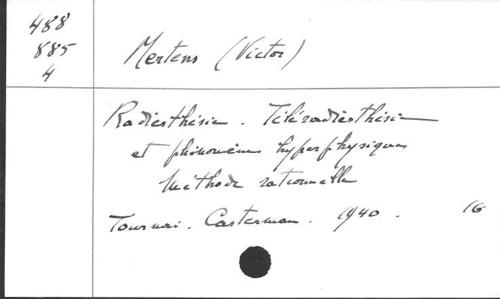 488
885
4
Mertens (Victor)
Radiesthésie. Téléradiesthésie
et phénomènes hyperphysiques
Méthode rationnelle
Tournai. Casterman. 1940. 16